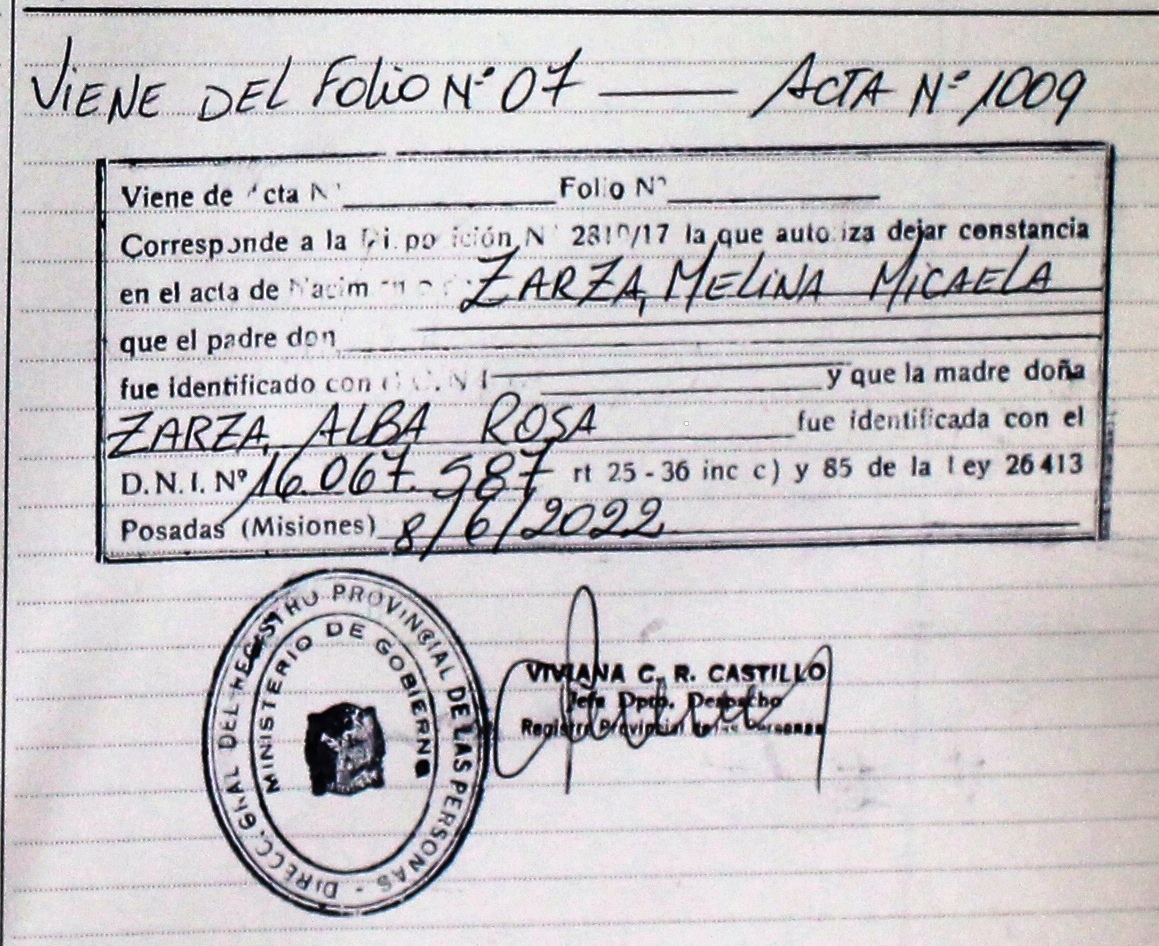 VIENE DEL FOLIO Nº 07 —— ACTA Nº 1009
Viene de Acta Nº ________ Folio Nº ________
Corresponde a la Disposición Nº 2810/17 la que autoriza dejar constancia
en el acta de Nacimiento ZARZA, MELINA MICAELA
que el padre don
fue identificado con y que la madre doña
ZARZA, ALBA ROSA fue identificada con el
D.N.I. Nº 16.067.587 rt 25 - 36 inc c) y 85 de la ley 26413
Posadas (Misiones) 8/6/2022
DIRECC. GRAL DEL REGISTRO PROVINCIAL DE LAS PERSONAS -
MINISTERIO DE GOBIERNO
VIVIANA C. R. CASTILLO
Jefa Dpto. Despacho
Registro Provincial de las Personas